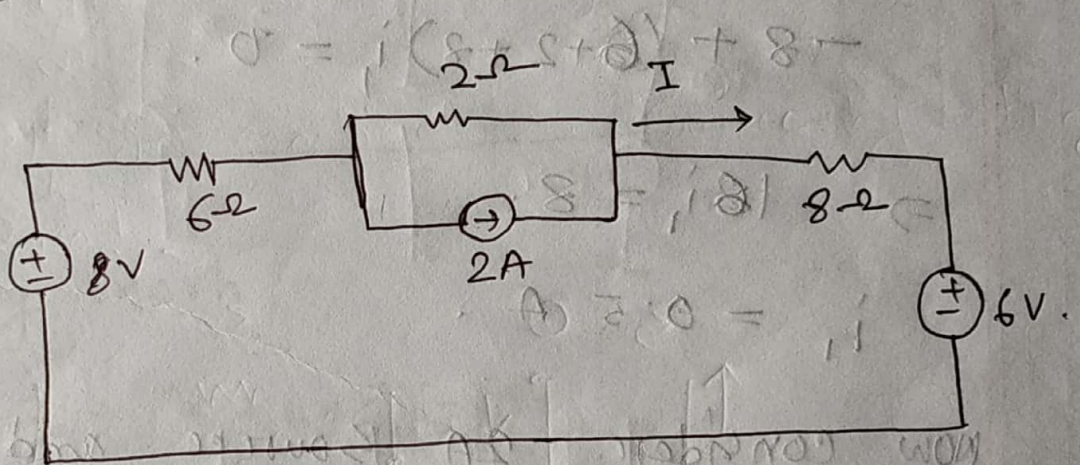 2Ω
I
6Ω
8Ω
+
−
8V
→
2A
+
−
6V.